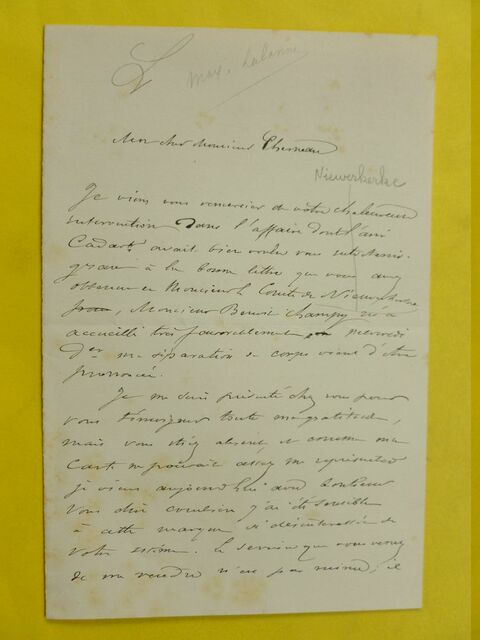 L Max. Lalanne
Mon cher Monsieur
Niewerkerke
Je viens vous remercier de votre chaleureuse
intervention dans l'affaire dont l'ami
Cadart avait bien voulu vous entretenir.
grace à la bonne lettre que vous avez
obtenue de Monsieur le Comte de Nieuwerkerke
Monsieur Benoit Champy m'a
accueilli très favorablement, mercredi
Der ma séparation de corps vient d'être
prononcée.
Je me suis présenté chez vous pour
vous témoigner toute ma gratitude,
mais vous étiez absent et comme ma
carte ne pouvait assez me représenter
je viens aujourd'hui avec bonheur
vous dire combien j'ai été sensible
à cette marque si désintéressée de
votre estime. le service que vous venez
de me rendre n'est pas mince, il